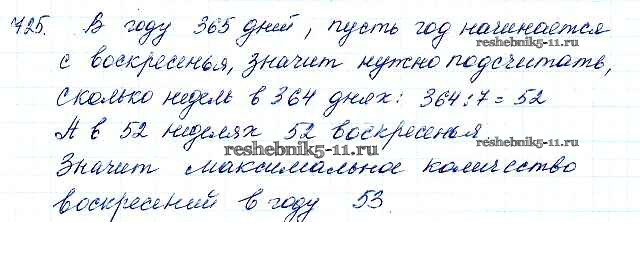 725. В году 365 дней, пусть год начинается
reshebnik5-11.ru
с воскресенья, значит нужно подсчитать,
сколько недель в 364 днях: 364:7=52
А в 52 неделях 52 воскресенья
reshebnik5-11.ru
Значит максимальное количество
воскресений в году 53.
reshebnik5-11.ru